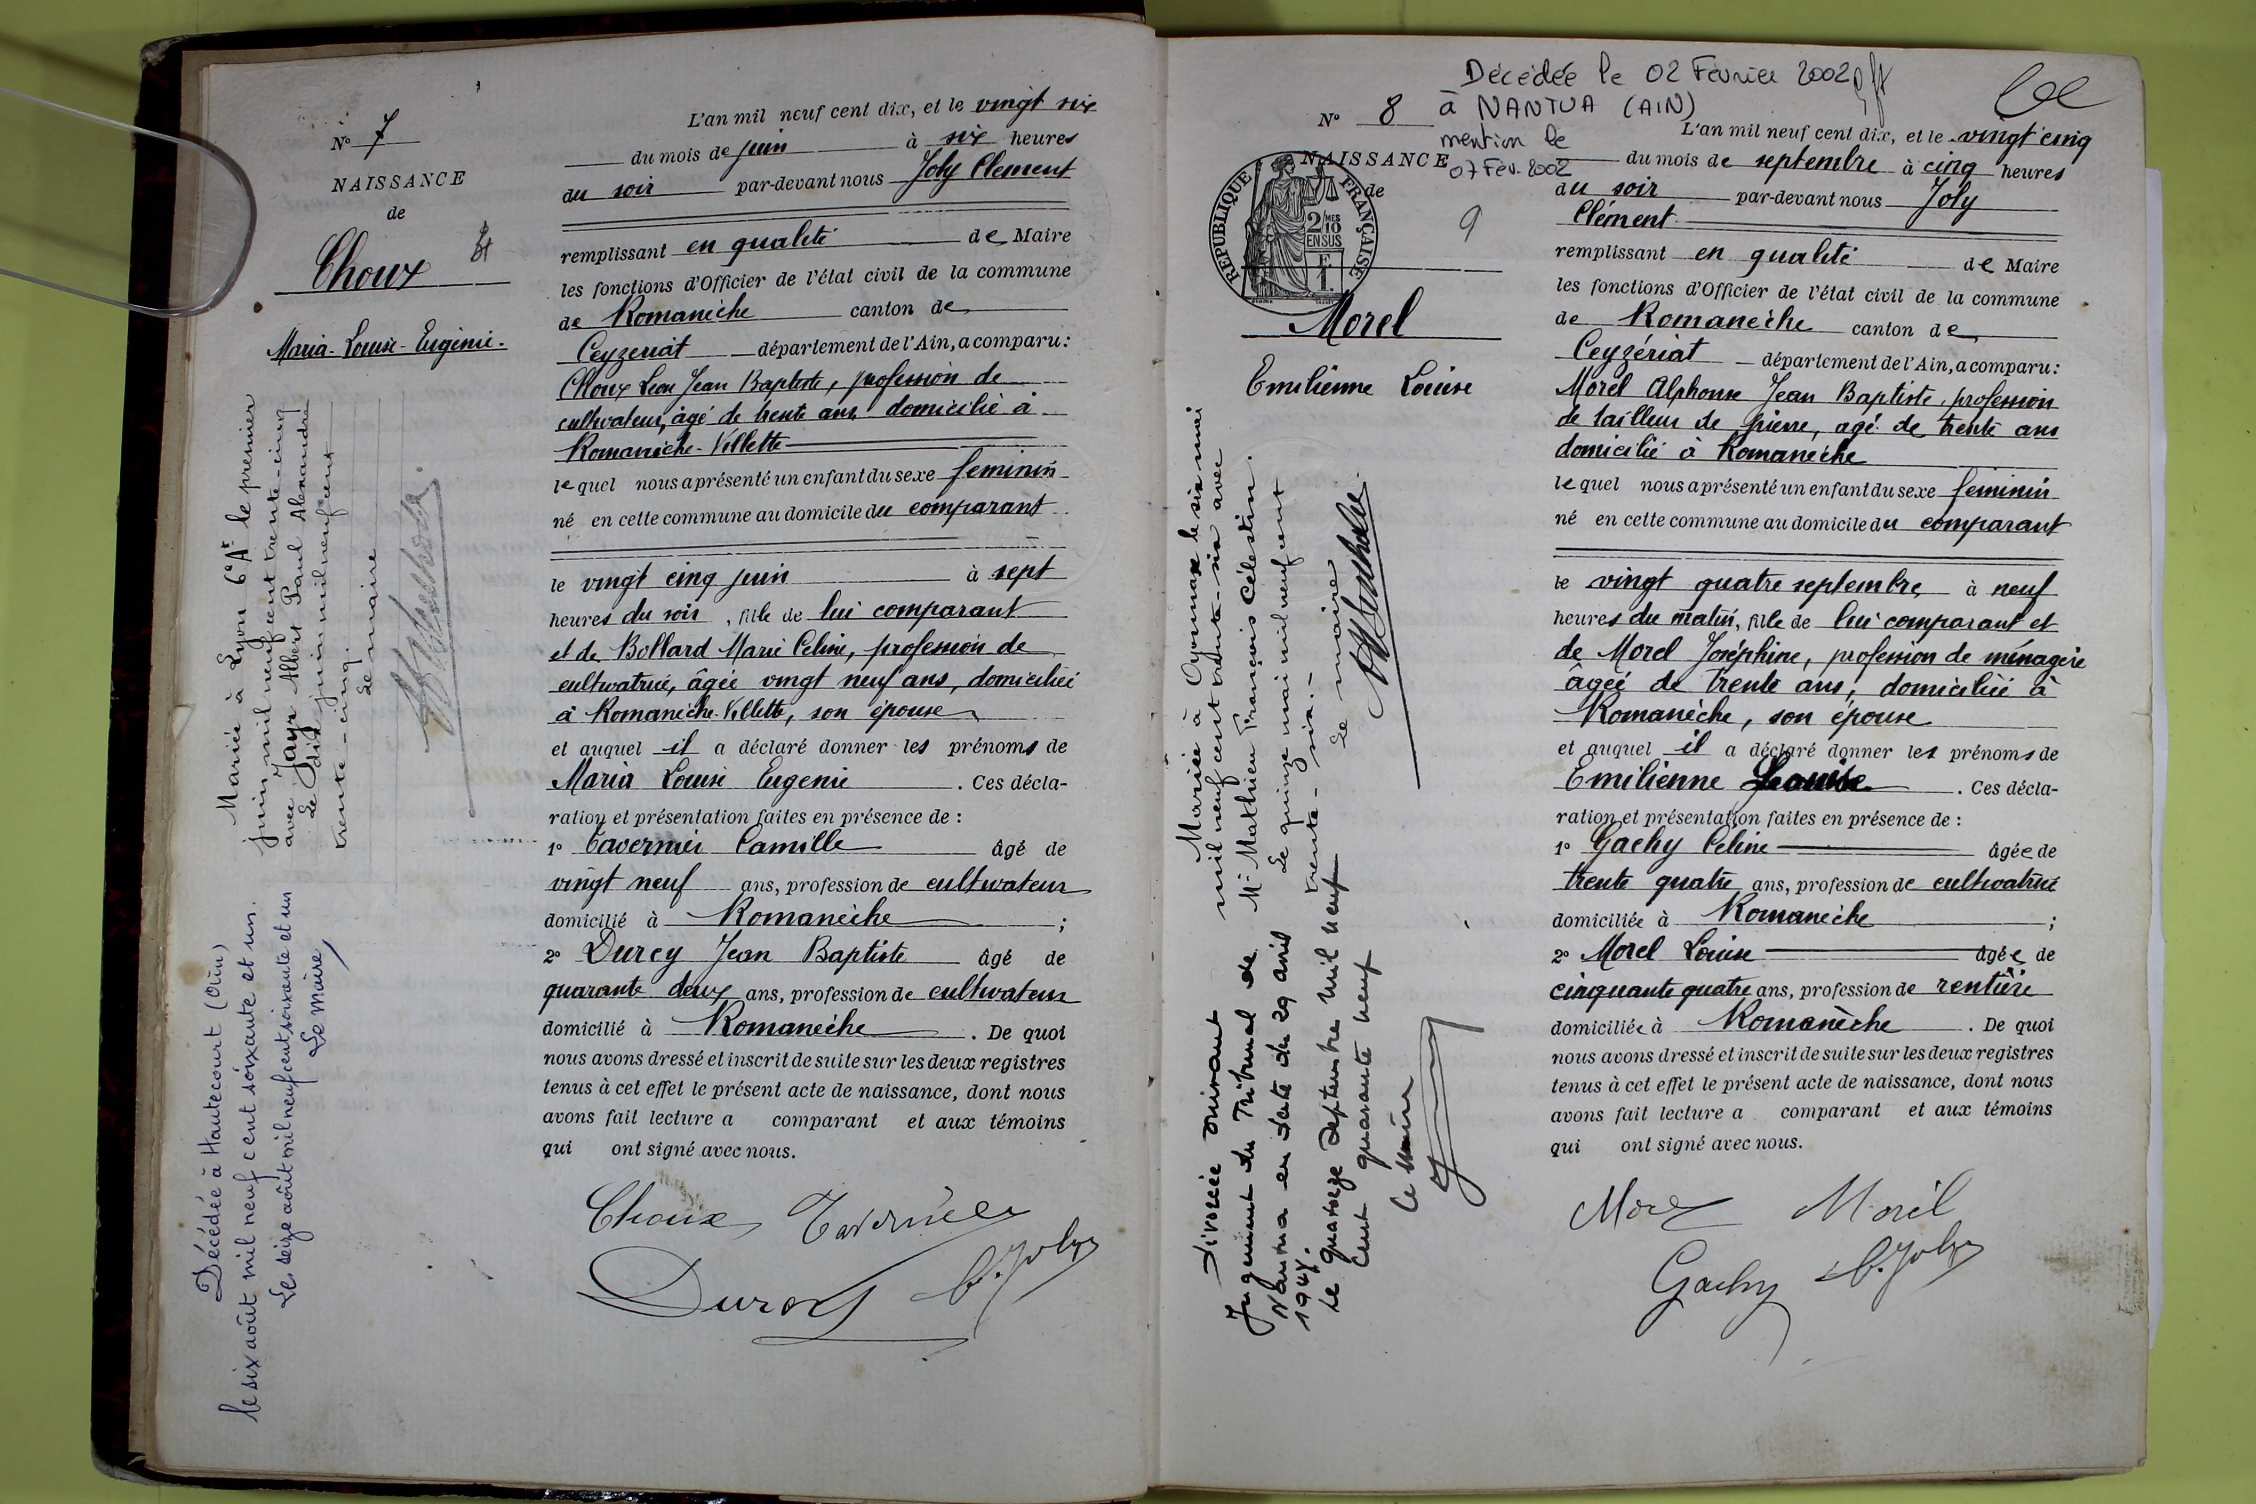 N° 7
NAISSANCE
de
Choux
Maria-Louise-Eugénie.
Mariée à Lyon 6e Art le premier
juin mil neuf cent trente-cinq
avec Jayr Albert Paul Alexandre
Le dix juin mil neuf cent
trente-cinq.
Le maire
Décédée à Hautecourt (Ain)
le six août mil neuf cent soixante et un.
Le seize août mil neuf cent soixante et un
Le Maire,
L'an mil neuf cent dix, et le vingt six
du mois de juin à six heures
du soir par-devant nous Joly Clement
remplissant en qualité de Maire
les fonctions d'Officier de l'état civil de la commune
de Romanèche canton de
Ceyzeriat département de l'Ain, a comparu:
Choux Léon Jean Baptiste, profession de
cultivateur, âgé de trente ans domicilié à
Romanèche-Villette
le quel nous a présenté un enfant du sexe feminin
né en cette commune au domicile du comparant
le vingt cinq juin à sept
heures du soir, fille de lui comparant
et de Bollard Marie Celine, profession de
cultivatrice, âgée vingt neuf ans, domiciliée
à Romanèche-Villette, son épouse
et auquel il a déclaré donner les prénoms de
Maria Louise Eugenie. Ces décla-
ration et présentation faites en présence de :
1° Tavernier Camille âgé de
vingt neuf ans, profession de cultivateur
domicilié à Romanèche ;
2° Durey Jean Baptiste âgé de
quarante deux ans, profession de cultivateur
domicilié à Romanèche. De quoi
nous avons dressé et inscrit de suite sur les deux registres
tenus à cet effet le présent acte de naissance, dont nous
avons fait lecture a comparant et aux témoins
qui ont signé avec nous.
Choux Tavernier
Durey C. Joly
Décédée le 02 Février 2002
à NANTUA (AIN)
mention le
07 Fév. 2002
N° 8
NAISSANCE
de
REPUBLIQUE FRANÇAISE
2/10 MES
EN SUS
9
Morel
Emilienne Louise
Mariée à Oyonnax le six mai
mil neuf cent trente-six avec
Mr Mathieu François Célestin.
Le quinze mai mil neuf cent
trente-six.-
Le maire
Divorcée suivant
Jugement du Tribunal de
Nantua en date du 29 avril
1947.
Le quatorze septembre mil neuf
cent quarante neuf
Le Maire
L'an mil neuf cent dix, et le vingt cinq
du mois de septembre à cinq heures
du soir par-devant nous Joly
Clément
remplissant en qualité de Maire
les fonctions d'Officier de l'état civil de la commune
de Romanèche canton de
Ceyzériat département de l'Ain, a comparu:
Morel Alphonse Jean Baptiste, profession
de tailleur de pierre, agé de trente ans
domicilié à Romanèche
le quel nous a présenté un enfant du sexe feminin
né en cette commune au domicile du comparant
le vingt quatre septembre à neuf
heures du matin, fille de lui comparant et
de Morel Joséphine, profession de ménagère
âgée de trente ans, domiciliée à
Romanèche, son épouse
et auquel il a déclaré donner les prénoms de
Emilienne Louise. Ces décla-
ration et présentation faites en présence de :
1° Gachy Céline âgée de
trente quatre ans, profession de cultivatrice
domiciliée à Romanèche ;
2° Morel Louise âgée de
cinquante quatre ans, profession de rentière
domiciliée à Romanèche. De quoi
nous avons dressé et inscrit de suite sur les deux registres
tenus à cet effet le présent acte de naissance, dont nous
avons fait lecture a comparant et aux témoins
qui ont signé avec nous.
Morel Morel
Gachy C. Joly